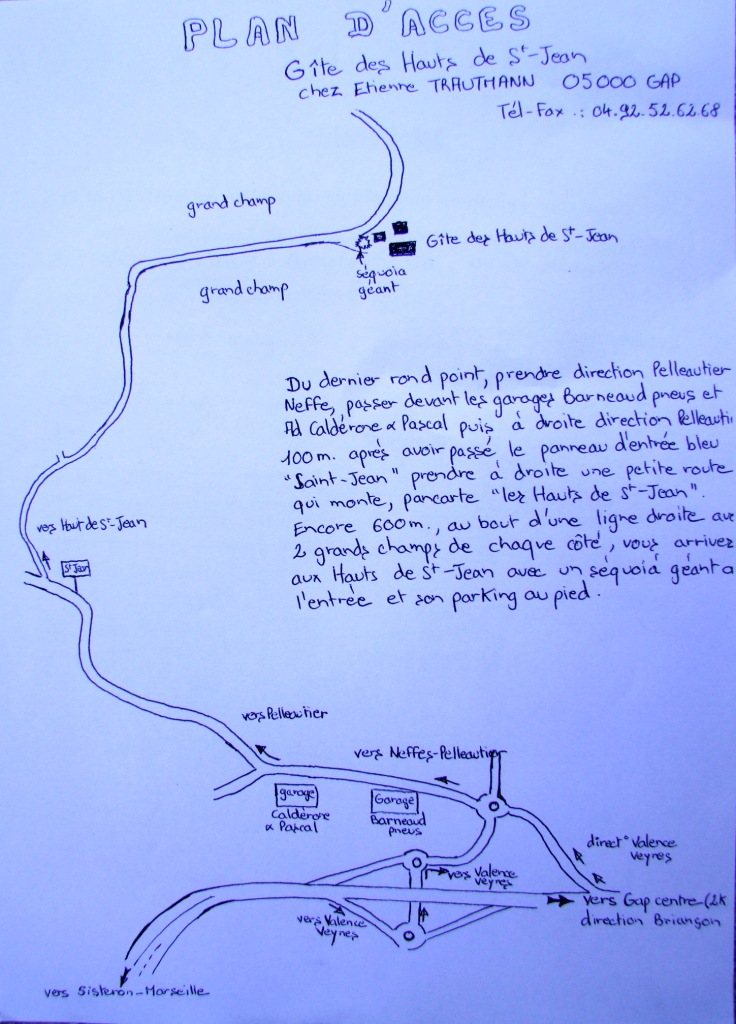 PLAN D'ACCES
Gîte des Hauts de St-Jean
chez Etienne TRAUTMANN 05000 GAP
Tél-Fax .: 04.92.52.62.68
grand champ
Gîte des Hauts de St-Jean
séquoia
géant
grand champ
Du dernier rond point, prendre direction Pelleautier
Neffe, passer devant les garages Barneaud pneus et
Ad Caldérone & Pascal puis à droite direction Pelleauti
100 m. après avoir passé le panneau d'entrée bleu
"Saint-Jean" prendre à droite une petite route
qui monte, pancarte "les Hauts de St-Jean".
Encore 600m., au bout d'une ligne droite av
2 grands champs de chaque côté, vous arrivez
aux Hauts de St-Jean avec un séquoia géant a
l'entrée et son parking au pied.
vers Haut de St-Jean
St Jean
vers Pelleautier
vers Neffes-Pelleautier
garage
Caldérone
& Pascal
Garage
Barneaud
pneus
direct° Valence
Veynes
vers Valence
Veynes
vers Gap centre (2k
direction Briançon
vers Valence
Veynes
vers Sisteron-Marseille